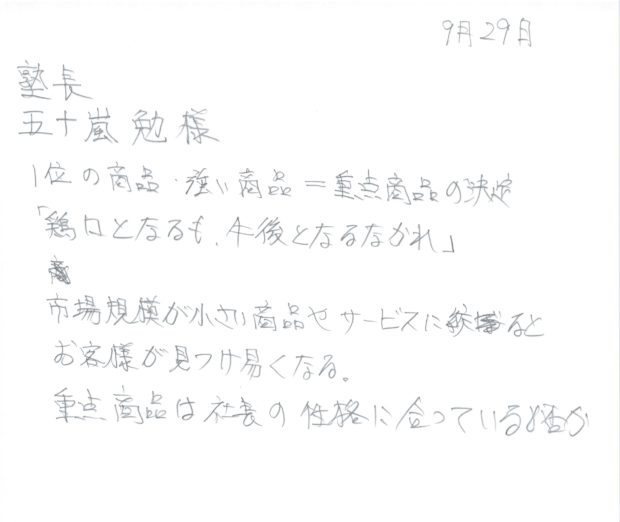 9月29日
塾長
五十嵐勉様
1位の商品・強い商品=重点商品の決定
「鶏口となるも、牛後となるなかれ」
市場規模が小さい商品やサービスに絞ると
お客様が見つけ易くなる。
重点商品は社長の性格に合っているか否か